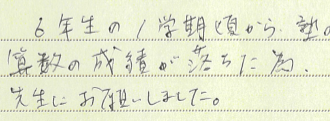 6年生の1学期頃から、塾の
算数の成績が落ちた為、
先生にお願いしました。